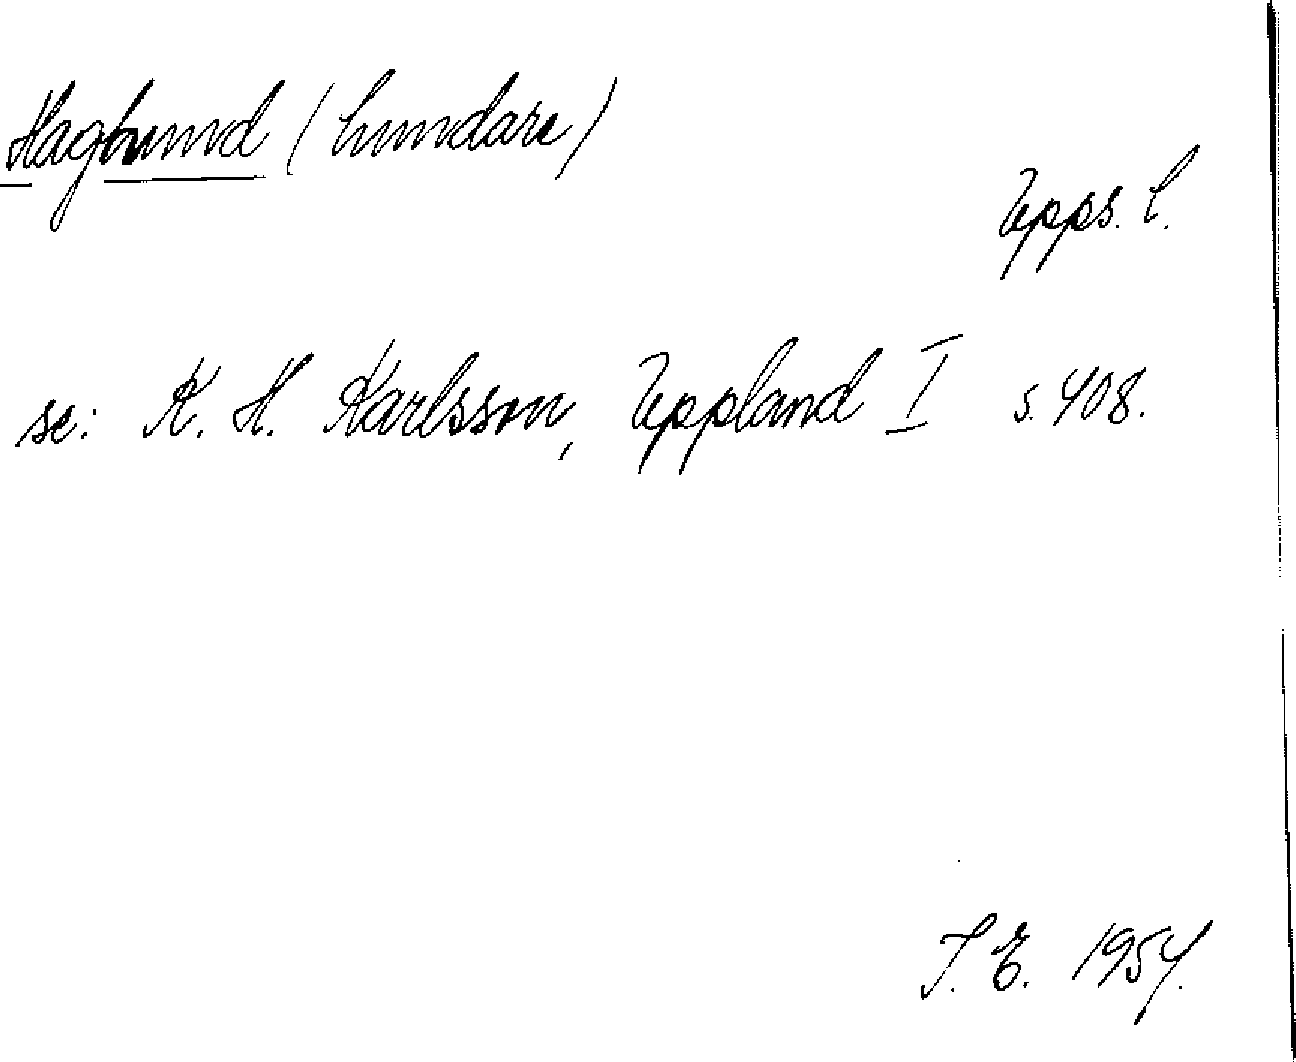 Hagbund (hundare)
Upps. l.
se: K. H. Karlsson, Uppland I s. 408.
S. E. 1954.